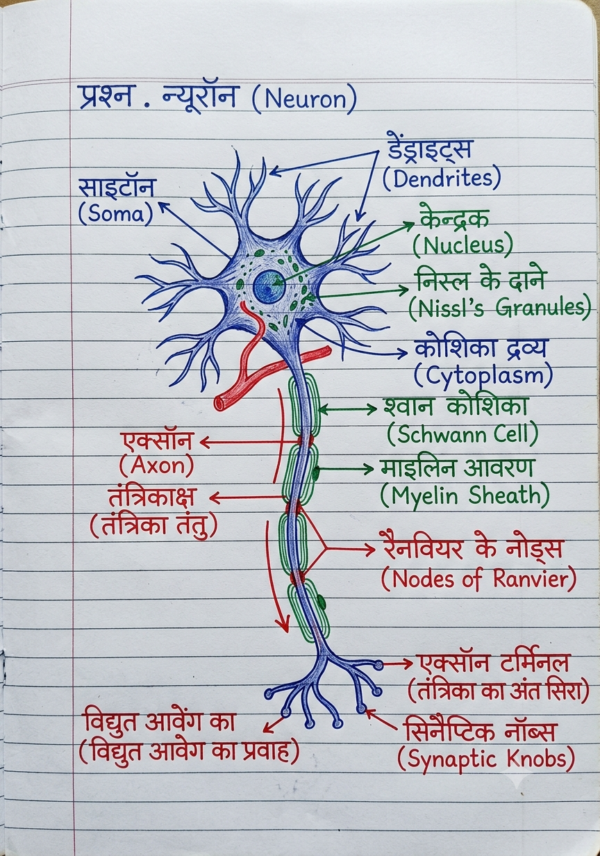 प्रश्न . न्यूरॉन (Neuron)
डेंड्राइट्स
(Dendrites)
साइटॉन
(Soma)
केन्द्रक
(Nucleus)
निस्ल के दाने
(Nissl's Granules)
कोशिका द्रव्य
(Cytoplasm)
श्वान कोशिका
(Schwann Cell)
एक्सॉन
(Axon)
माइलिन आवरण
(Myelin Sheath)
तंत्रिकाक्ष
(तंत्रिका तंतु)
रैनवियर के नोड्स
(Nodes of Ranvier)
एक्सॉन टर्मिनल
(तंत्रिका का अंत सिरा)
विद्युत आवेंग का
(विद्युत आवेग का प्रवाह)
सिनैप्टिक नॉब्स
(Synaptic Knobs)